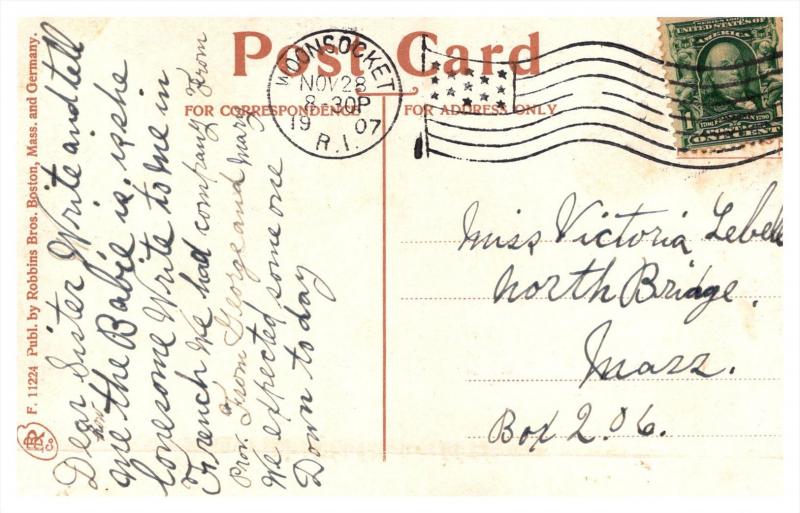 Post Card
FOR CORRESPONDENCE
FOR ADDRESS ONLY
WOONSOCKET
NOV 28
8-30P
19 07
R.I.
SERIES 1902
UNITED STATES OF
AMERICA
1 1
1706 FRANKLIN 1790
POSTAGE
ONE CENT
F. 11224 Publ. by Robbins Bros. Boston, Mass. and Germany.
Dear Sister Write and tell
me the Babie is. is she
lonesome Write to me in
French We had company From
Prov. From George and Mary
We expected some one
Down to day
Miss Victoria Lebelle
North Bridge.
Mass.
Box 206.